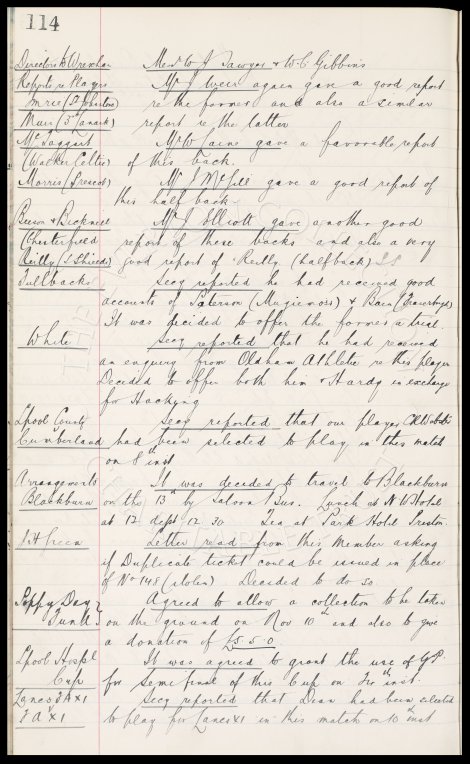 114
Directors to Wrexham Messrs W J Sawyer & W. C. Gibbins
Reports re Players Mr J Weir again gave a good report
Imrie (St Johnstone) re the former and also a similar
Muir (3rd Lanark) report re the latter
McTaggart Mr W Caine gave a favorable report
(Walker Celtic) of this back.
Morris (Prescot) Mr J McGill gave a good report of
this half back
Beeson & Bicknell Mr J Elliott gave another good
(Chesterfield report of these backs and also a very
Reilly (S Shields) good report of Reilly (halfback) S S
Fullbacks Secy reported he had received good
accounts of Paterson (Mugiemoss) & Bain (Fraserburgh)
It was decided to offer the former a trial
White Secy reported that he had received
an enquiry from Oldham Athletic re this player
Decided to offer both him & Hardy in exchange
for Hacking
Lpool County Secy reported that our player C R Webster
Cumberland had been selected to play in this match
on 8th inst
Arrangements It was decided to travel to Blackburn
Blackburn on the 13th by Saloon Bus. Lunch at N W Hotel
at 12 dept 12.30 Tea at Park Hotel Preston
J H Green Letter read from this Member asking
if Duplicate ticket could be issued in place
of No 148 (stolen) Decided to do so
Poppy Day Agreed to allow a collection to be taken
Fund on the ground on Nov 10th and also to give
a donation of £5 5 0
Lpool Hospl It was agreed to grant the use of G.P.
Cup for Semi final of this Cup on inst
Lancs F A X1 Secy reported that Dean had been selected
F A X1 to play for Lancs X1 in this match on 10th inst